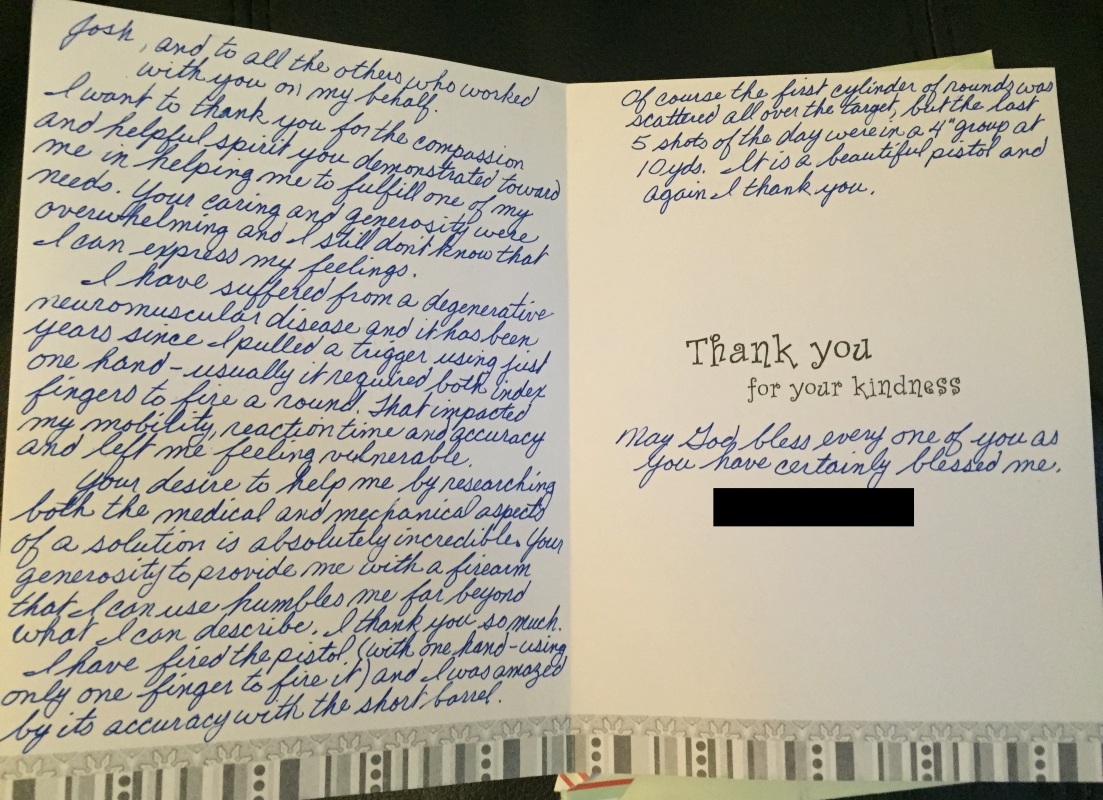 Josh, and to all the others who worked
with you on my behalf.
I want to thank you for the compassion
and helpful spirit you demonstrated toward
me in helping me to fulfill one of my
needs. Your caring and generosity were
overwhelming and I still don't know that
I can express my feelings.
I have suffered from a degenerative
neuromuscular disease and it has been
years since I pulled a trigger using just
one hand - usually it required both index
fingers to fire a round. That impacted
my mobility, reaction time and accuracy
and left me feeling vulnerable.
Your desire to help me by researching
both the medical and mechanical aspects
of a solution is absolutely incredible. Your
generosity to provide me with a firearm
that I can use humbles me far beyond
what I can describe. I thank you so much.
I have fired the pistol (with one hand - using
only one finger to fire it) and I was amazed
by its accuracy with the short barrel.
Of course the first cylinder of rounds was
scattered all over the target, but the last
5 shots of the day were in a 4" group at
10 yds. It is a beautiful pistol and
again I thank you.
Thank you
for your kindness
May God bless every one of you as
you have certainly blessed me.